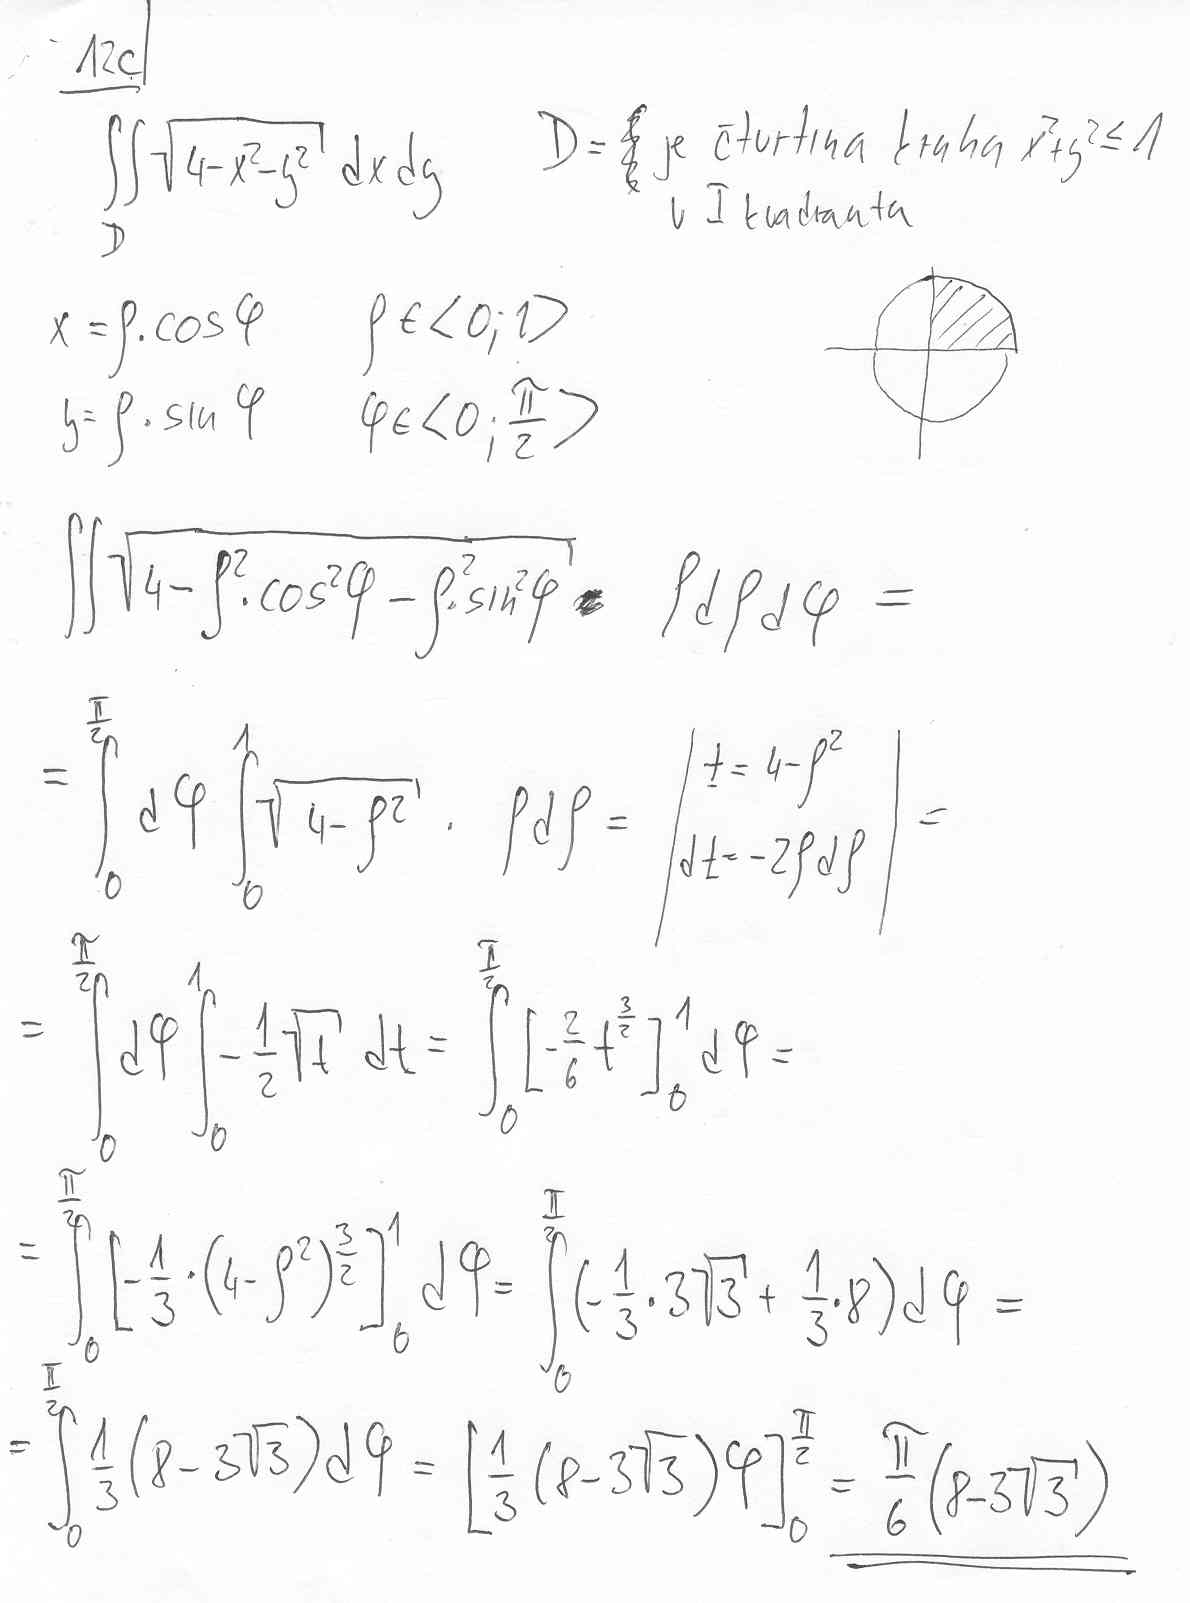 12c
∬_D √(4-x²-y²) dx dy   D = je čtvrtina kruhu x²+y² ≤ 1
v I kvadrantu
x = ρ·cos φ   ρ ∈ <0; 1>
y = ρ·sin φ   φ ∈ <0; π/2>
∬ √(4-ρ²·cos²φ - ρ²·sin²φ) ρ dρ dφ =
= ∫_0^{π/2} dφ ∫_0^1 √(4-ρ²) · ρ dρ = | t = 4-ρ² | =
| dt = -2ρ dρ |
= ∫_0^{π/2} dφ ∫_0^1 -1/2 √t dt = ∫_0^{π/2} [-2/6 t^{3/2}]_0^1 dφ =
= ∫_0^{π/2} [-1/3·(4-ρ²)^{3/2}]_0^1 dφ = ∫_0^{π/2} (-1/3·3√3 + 1/3·8) dφ =
= ∫_0^{π/2} 1/3 (8-3√3) dφ = [1/3 (8-3√3) φ]_0^{π/2} = π/6 (8-3√3)